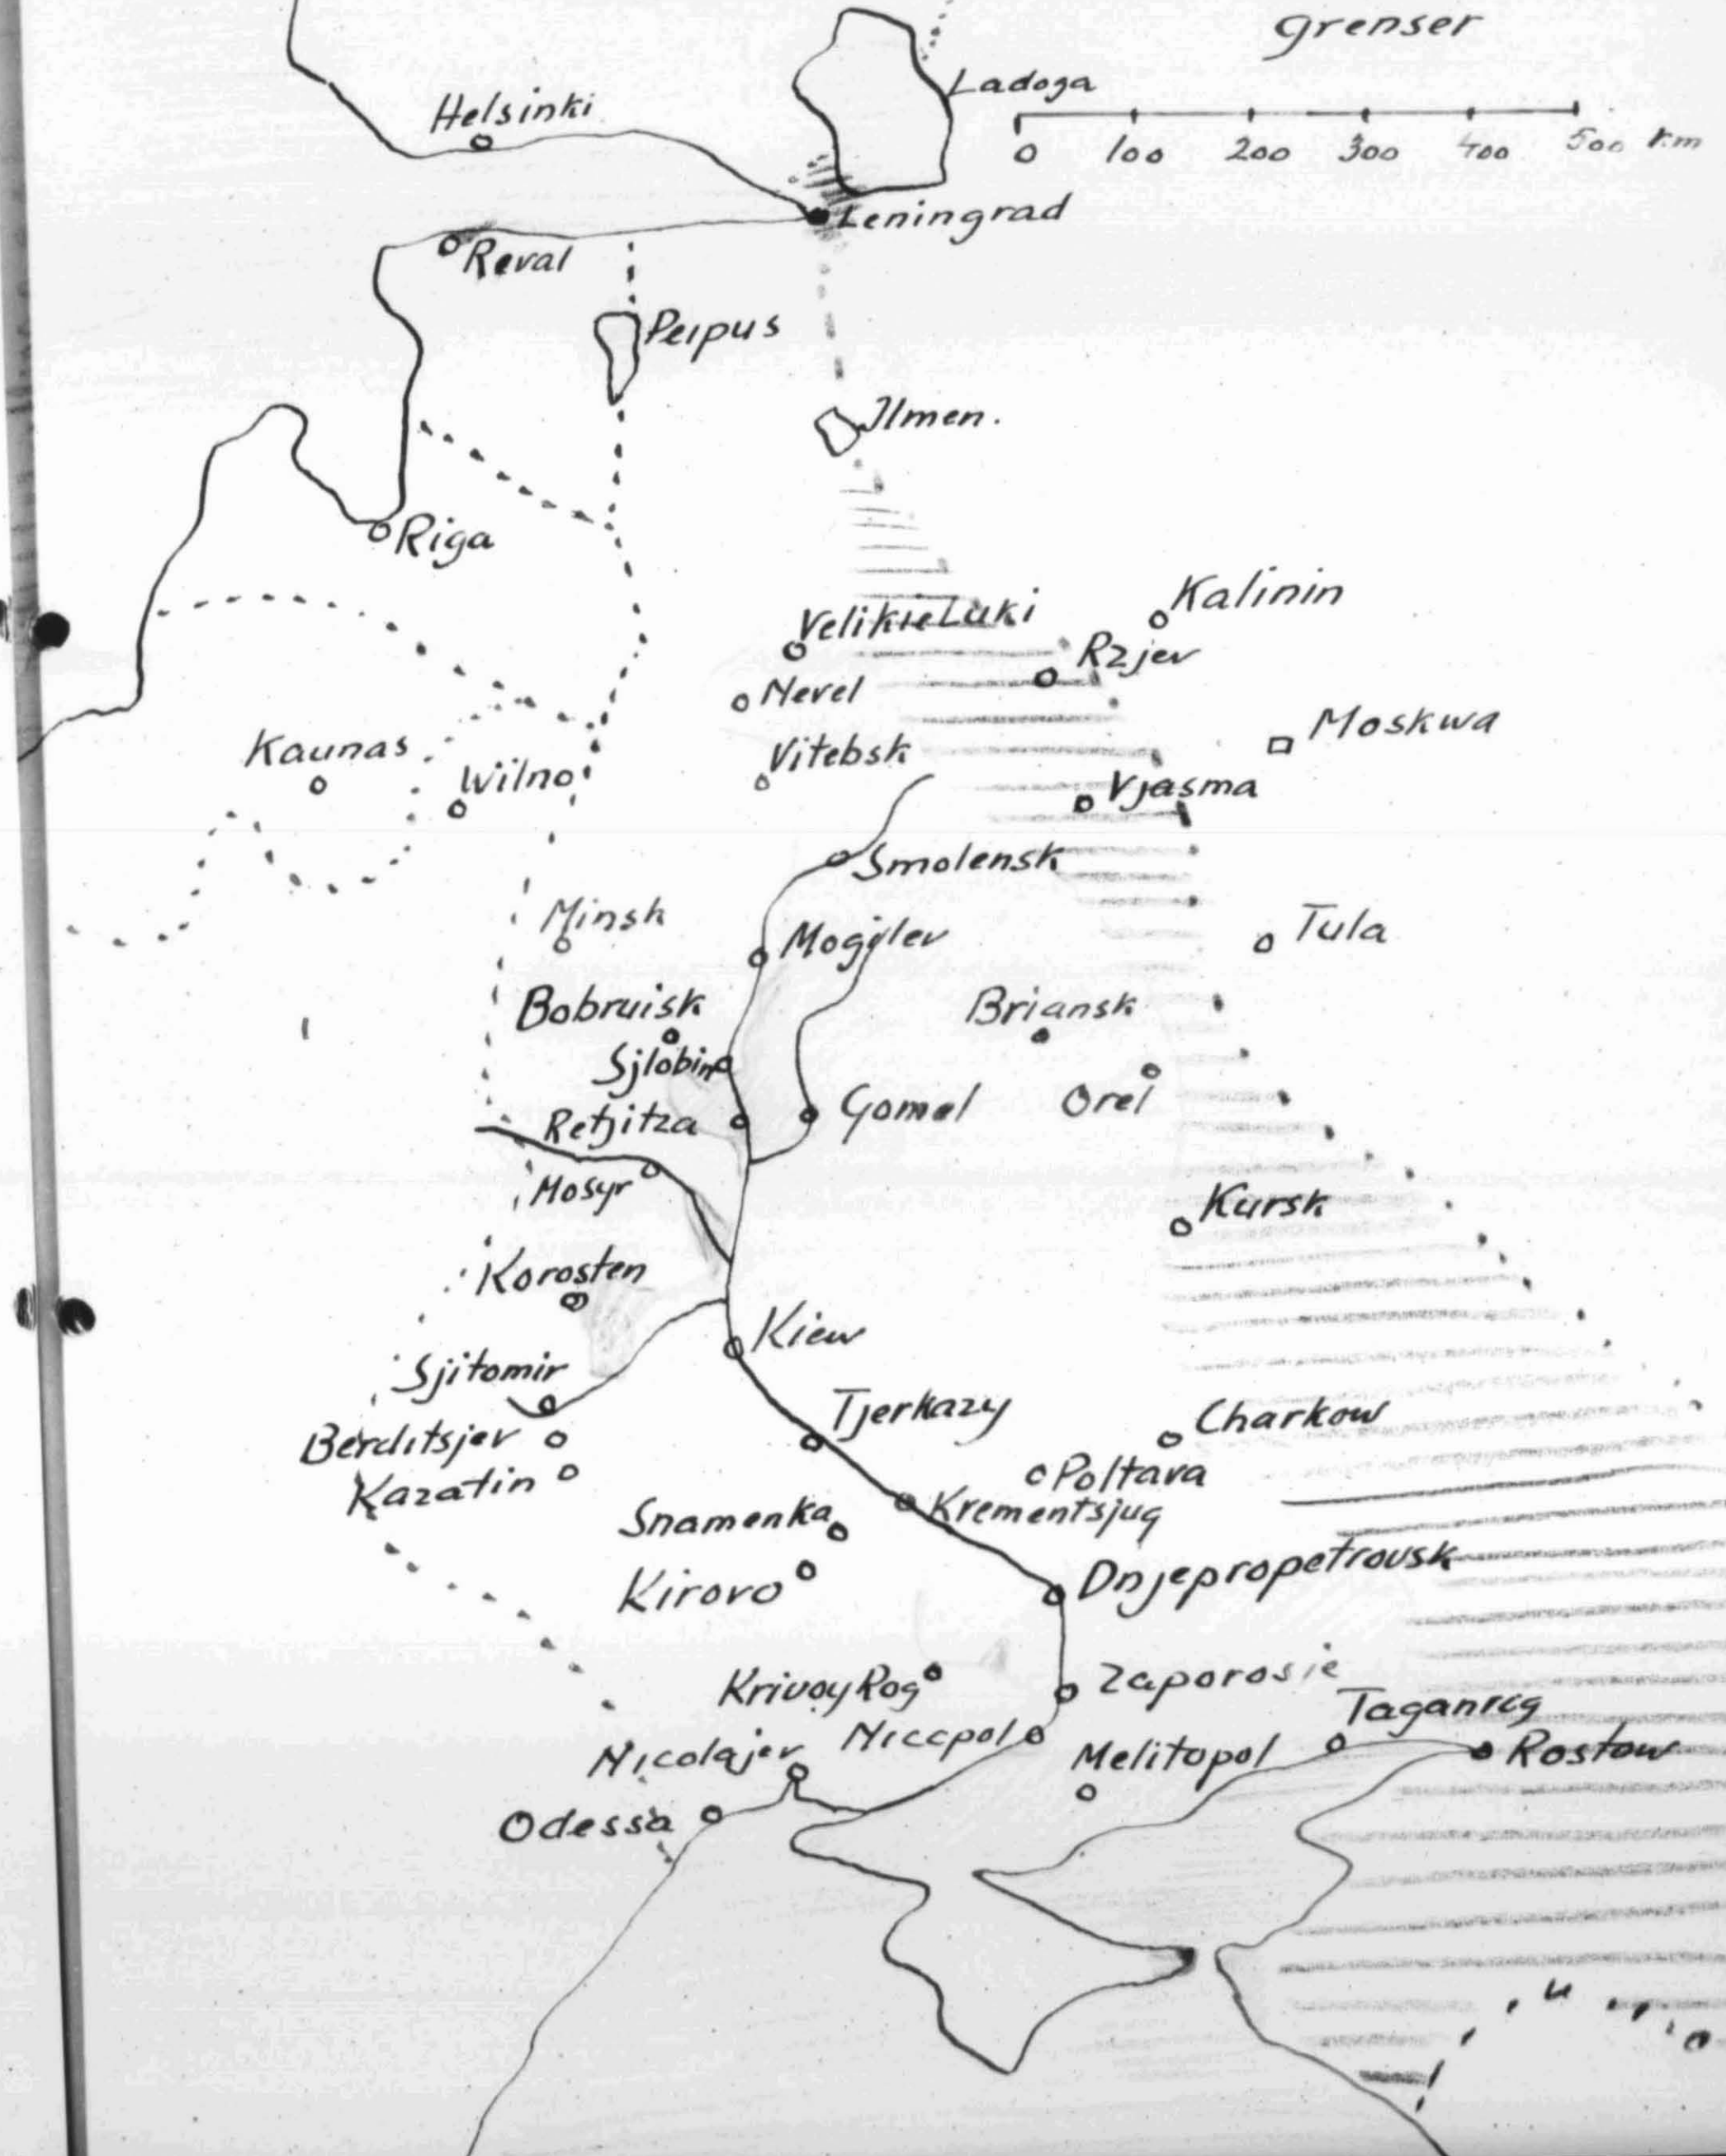 Grenser
Ladoga
0 100 200 300 400 500 km
Helsinki
Leningrad
Reval
Peipus
Ilmen.
Riga
Kalinin
Velikie Luki
Rzjev
Nevel
Moskwa
Kaunas
Vitebsk
Wilno
Vjasma
Smolensk
Minsk
Mogilev
Tula
Bobruisk
Briansk
Sjlobin
Gomel
Orel
Retjitza
Mosyr
Kursk
Korosten
Kiew
Sjitomir
Tjerkazy
Charkow
Berditsjev
Poltava
Kazatin
Krementsjug
Snamenka
Dnjepropetrovsk
Kirovo
Zaporosie
Krivoy Rog
Taganrog
Niccpol
Nicolajev
Melitopol
Rostow
Odessa